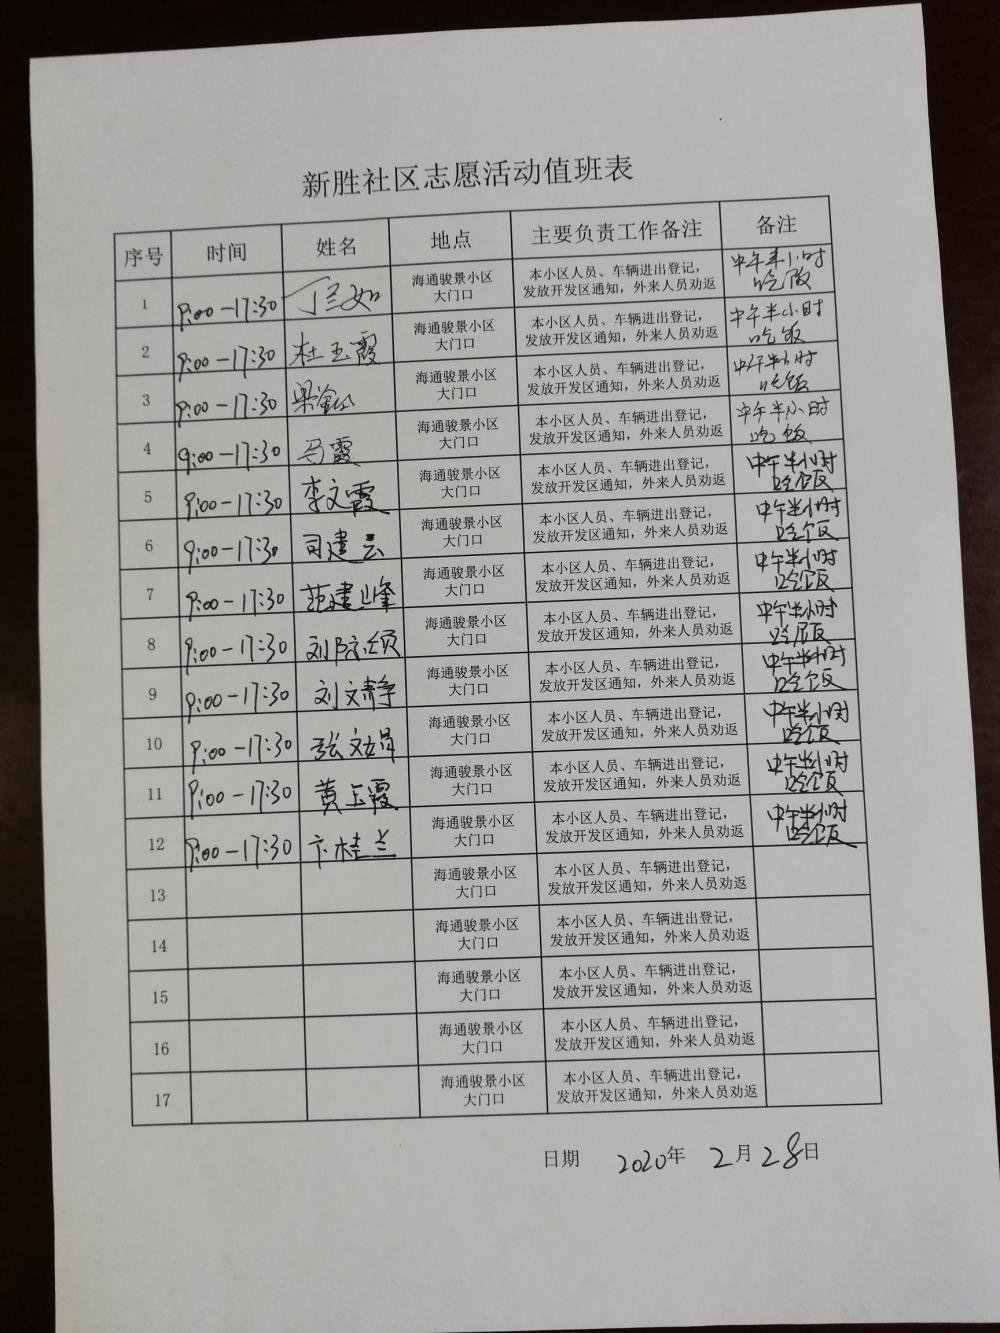 新胜社区志愿活动值班表
序号 时间 姓名 地点 主要负责工作备注 备注
1 9:00-17:30 丁兰如 海通骏景小区 本小区人员、车辆进出登记， 中午半小时
大门口 发放开发区通知，外来人员劝返 吃饭
2 9:00-17:30 杜玉霞 海通骏景小区 本小区人员、车辆进出登记， 中午半小时
大门口 发放开发区通知，外来人员劝返 吃饭
3 9:00-17:30 海通骏景小区 本小区人员、车辆进出登记， 中午半小时
大门口 发放开发区通知，外来人员劝返 吃饭
4 9:00-17:30 马霞 海通骏景小区 本小区人员、车辆进出登记， 中午半小时
大门口 发放开发区通知，外来人员劝返 吃饭
5 9:00-17:30 李文霞 海通骏景小区 本小区人员、车辆进出登记， 中午半小时
大门口 发放开发区通知，外来人员劝返 吃饭
6 9:00-17:30 司建云 海通骏景小区 本小区人员、车辆进出登记， 中午半小时
大门口 发放开发区通知，外来人员劝返 吃饭
7 9:00-17:30 范建峰 海通骏景小区 本小区人员、车辆进出登记， 中午半小时
大门口 发放开发区通知，外来人员劝返 吃饭
8 9:00-17:30 海通骏景小区 本小区人员、车辆进出登记， 中午半小时
大门口 发放开发区通知，外来人员劝返 吃饭
9 9:00-17:30 刘文静 海通骏景小区 本小区人员、车辆进出登记， 中午半小时
大门口 发放开发区通知，外来人员劝返 吃饭
10 9:00-17:30 张文娟 海通骏景小区 本小区人员、车辆进出登记， 中午半小时
大门口 发放开发区通知，外来人员劝返 吃饭
11 9:00-17:30 黄玉霞 海通骏景小区 本小区人员、车辆进出登记， 中午半小时
大门口 发放开发区通知，外来人员劝返 吃饭
12 9:00-17:30 卞桂兰 海通骏景小区 本小区人员、车辆进出登记， 中午半小时
大门口 发放开发区通知，外来人员劝返 吃饭
13 海通骏景小区 本小区人员、车辆进出登记，
大门口 发放开发区通知，外来人员劝返
14 海通骏景小区 本小区人员、车辆进出登记，
大门口 发放开发区通知，外来人员劝返
15 海通骏景小区 本小区人员、车辆进出登记，
大门口 发放开发区通知，外来人员劝返
16 海通骏景小区 本小区人员、车辆进出登记，
大门口 发放开发区通知，外来人员劝返
17 海通骏景小区 本小区人员、车辆进出登记，
大门口 发放开发区通知，外来人员劝返
日期 2020年 2月28日